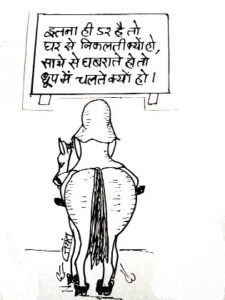 इतना ही डर है तो
घर से निकलती क्यों हो,
साये से घबराते हो तो
धूप में चलते क्यों हो !